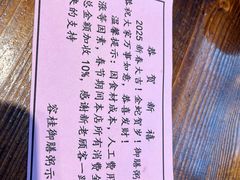 恭贺新禧
2025新春大吉！金蛇贺岁！御膳粥
恭祝大家万事如意，恭喜发财！
温馨提示：因食材成本，人工费用
涨等因素，春节期间本店所有消费
总金额加收10%，感谢新老顾客一
来的支持
容桂御膳粥示